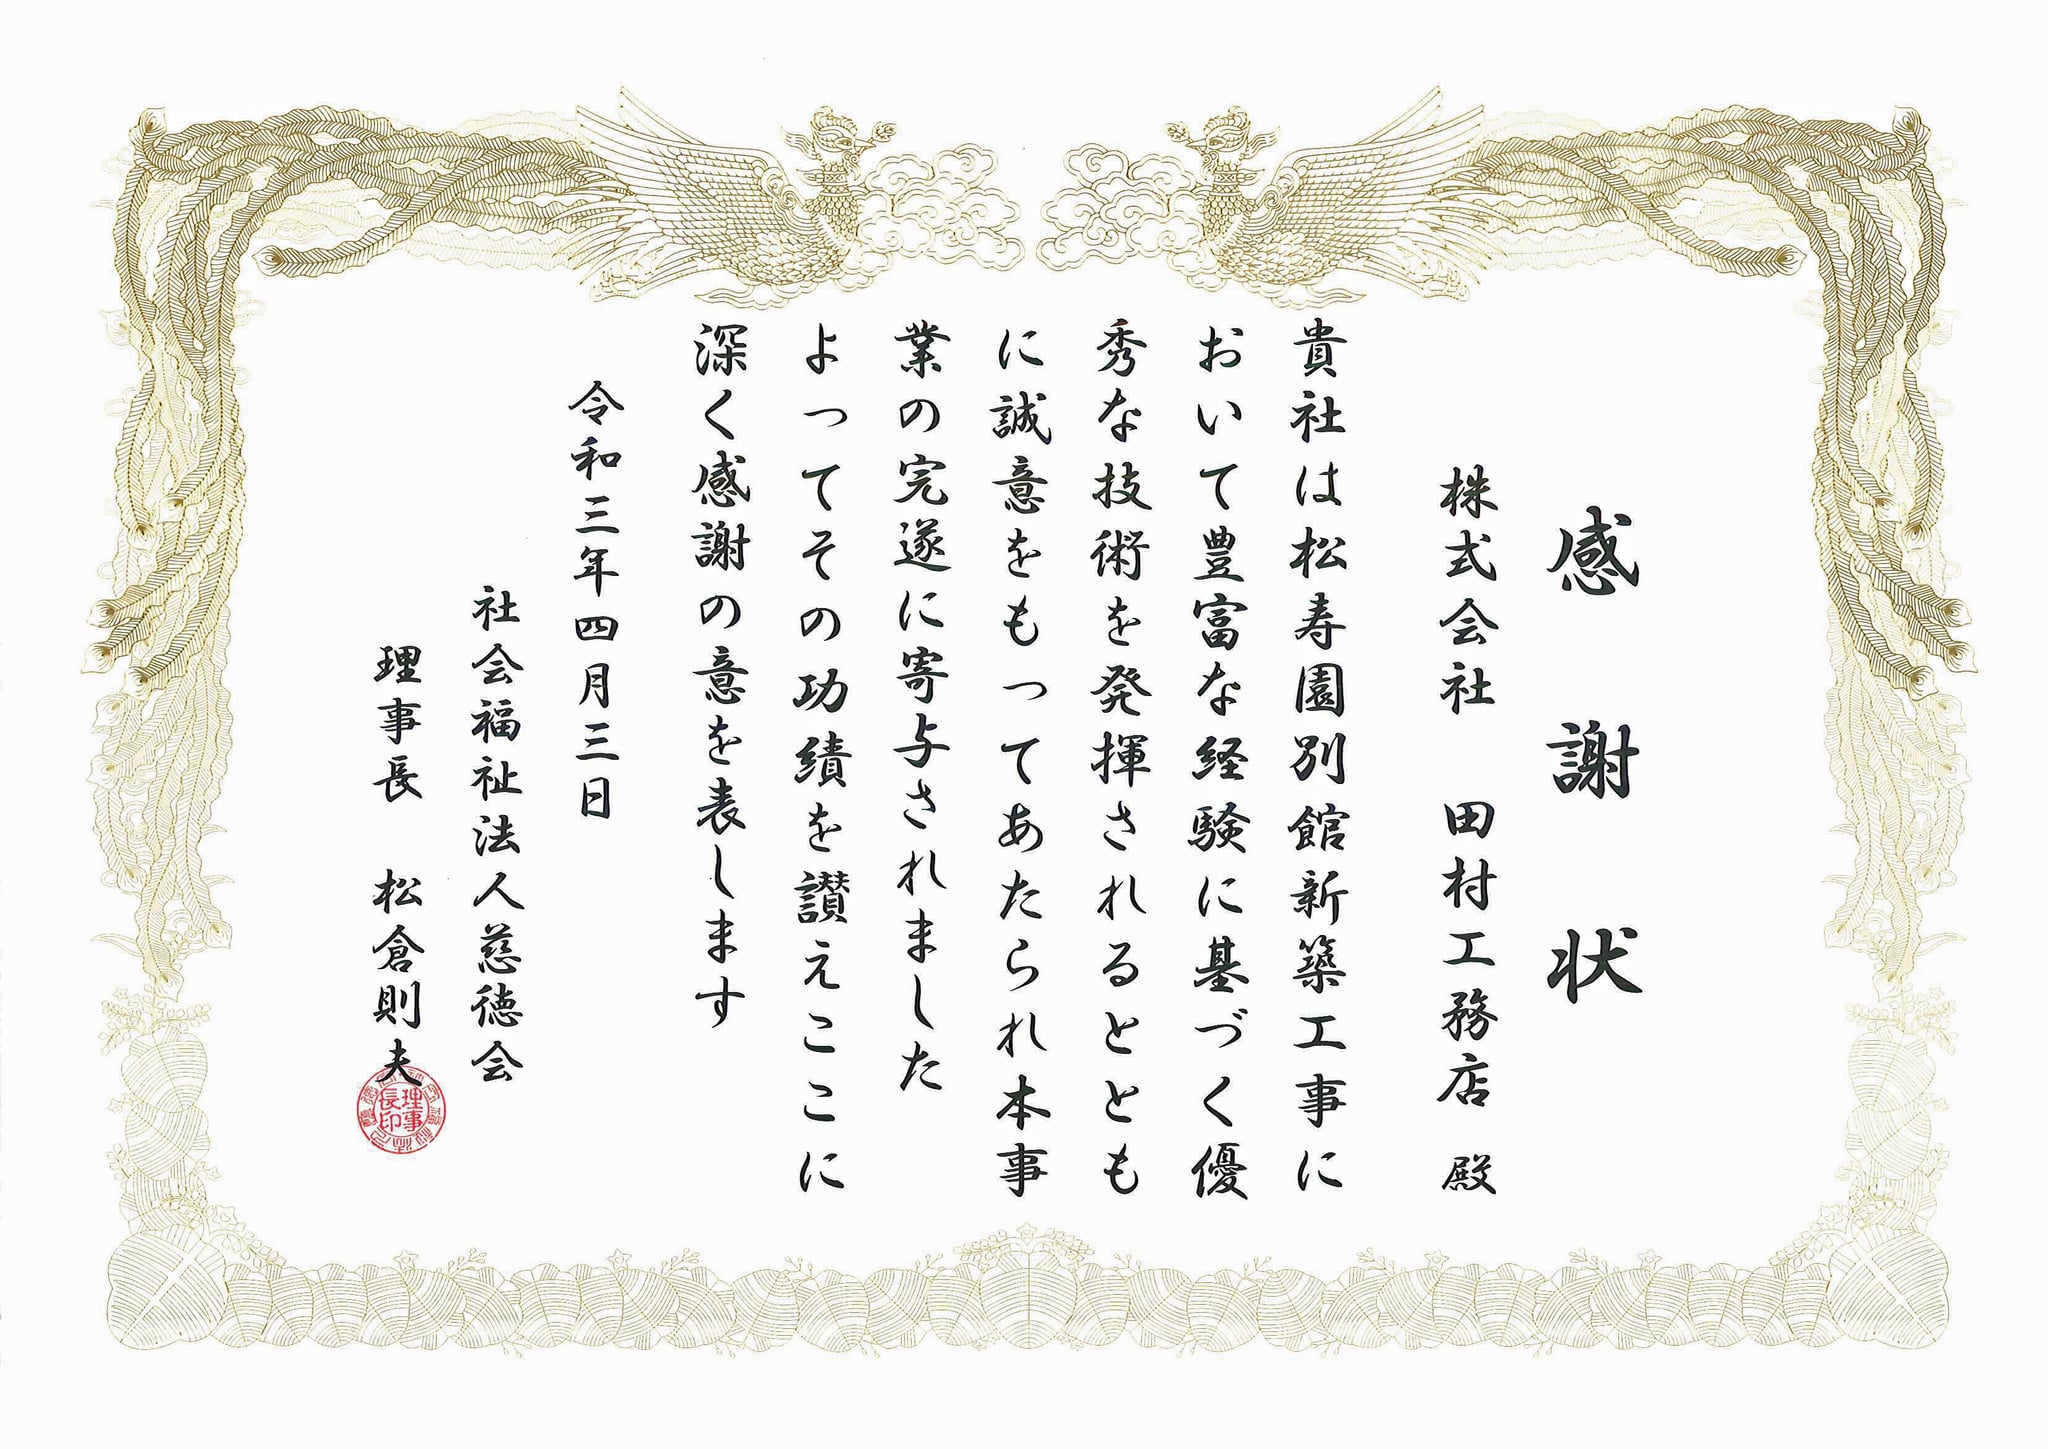 感謝状
株式会社 田村工務店 殿
貴社は松寿園別館新築工事に
おいて豊富な経験に基づく優
秀な技術を発揮されるととも
に誠意をもってあたられ本事
業の完遂に寄与されました
よってその功績を讃えここに
深く感謝の意を表します
令和三年四月三日
社会福祉法人慈徳会
理事長 松倉則夫
理事
長印